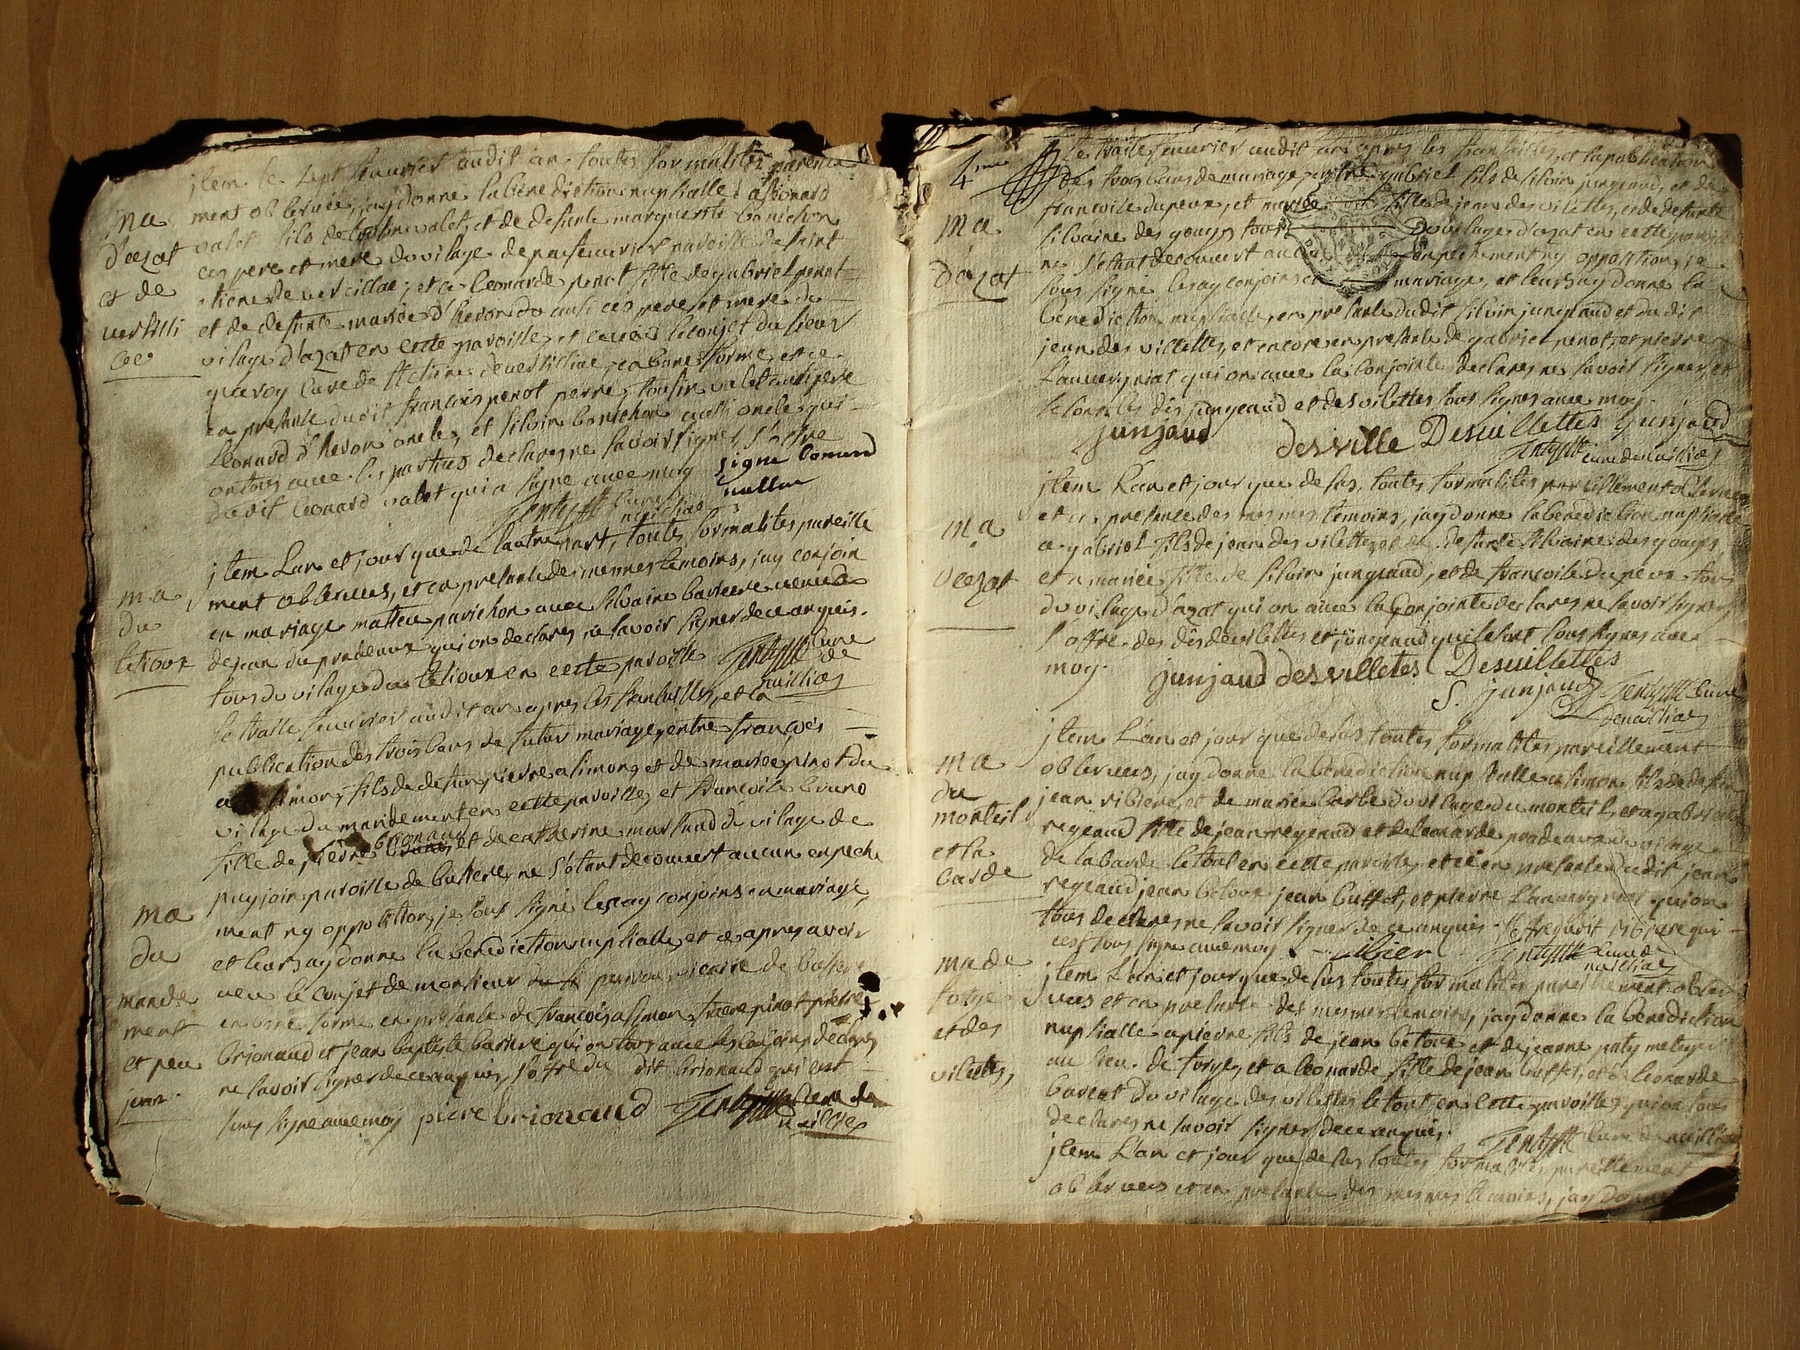 jtem le sept feuvrier audit an toutes formalités pareille
ment observées, jay donné la bénédiction nuptialle a léonard
valet fils de toussin valet, et de defunte marguerite bonichon
ces pere et mere du vilage de paroisse de saint
etiene de versillac, et a leonarde penot fille de gabriel penot
et de defunte mariée d'hevon du ausi ces pere et mere du
vilage d'azat en cette paroisse, et ce vu le conjet du sieur
curé de st etiene de versilliac, en bone forme et ce
en presance dudit françois penot perre, toussin valet aussi pere
léonard d'hevon oncle, et silvin bonichon aussi oncle qui
ont tous avec les parties declarés ne savoir signer, s'offre
dudit léonard valet qui a signé avec moy
Gentysse curé
naillias
ma
d'azat
et de
versilli
ac
jtem l'an et jour que de l'autre part, toutes formalités pareille
ment observées, et en presance des mesmes temoins, jay conjoin
en mariage matieu parichon avec silvaine bariere veuve
de jean du pradeaux qui on declarés ne savoir signer de ce anquis
tous du vilage du letioux en cette paroisse Gentysse curé de
naillias
ma
du
letioux
le traise feuvrier audit an apres les fiansailles, et la
publication des trois bans de futur mariage, entre françois
asimon, fils de defun pierre asimon, et de mariee pinot du
vilage du mandement en cette paroisse, et françoise briono
fille de pierre brionaud et de catherine marsaud du vilage de
puyjoin paroisse de bussere, ne s'étant decouvert aucun enpeche
ment ny opposition, je sous signé les ay conjoins en mariage,
et leurs ay donné la bénédiction nuptialle, et ce apres avoir
veu le conjet de monsieur vicaire de bussere
en bone forme en présance de françois asimon frere pinot pierre
brionaud et jean baptiste bariere qui on tous avec les conjoins declarés
ne savoir signer de ce anquis, s'offre du dit brionaud qui c'est
sous signé avec moy pierre brionaud Gentysse curé de
naillias
ma
du
mande
ment
et peu
join
4me
le traise feuvrier audit an apres les fiansailles, et la publication
des trois bans de mariage, entre gabriel fils de silvin junjaud, et de
françoise dupeux, et mariee fille de jean des vilettes, et de defunte
silvaine des gouges tous du vilage d'azat en cette parois
ne s'étant decouvert aucun enpechement ny opposition, je
sous signé les ay conjoins en mariage, et leurs ay donné la
bénédiction nuptialle, en presance dudit silvin junjaud et dudit
jean des villettes, et encore en presance de gabriel penot, et pierre
l'auvergniat qui on avec la conjointe declarés ne savoir signer, et
se sont les dis junjaud et des vilettes sous signés avec moy
junjaud desville Desuillettes Junjaud
Gentysse curé de naillias
ma
d'azat
jtem l'an et jour que desus, toutes formalités pareillement observées
et en presance des mesmes temoins, jay donné la bénédiction nuptialle
a gabriel fils de jean des vilettes, et de defunte silvaine des gouges,
et a mariée fille de silvin junjaud, et de françoise dupeux tous
du vilage d'azat qui on avec la conjointe declarés ne savoir signer
s'offre des dis des vilettes et junjaud qui se sont sous signés avec
moy. junjaud desvilletes Desuillettes
S. junjaud Gentysse curé
de naillias
ma
d'azat
jtem l'an et jour que desus toutes formalités pareillement
observées, jay donné la bénédiction nuptialle a simon fils de defun
jean ribiere, et de mariée barbe du vilage du monteil, et a gabrielle
regeaud fille de jean regeaud et de leonarde pradeaux du vilage
de la barde le tout en cette paroisse, et ce en presance dudit jean
regeaud jean betoux jean buffet, et pierre l'auvergniat qui on
tous declarés ne savoir signer de ce anquis
c'est sous signé avec moy Gentysse curé de
naillias
ma
du
monteil
et la
barde
jtem l'an et jour que desus toutes formalités pareillement obser
vées et en presance des mesmes temoins, jay donné la bénédiction
nuptialle a pierre fils de jean betoux et de jeanne paty metayers
au lieu de forges, et a leonarde fille de jean buffet, et de leonarde
barcat du vilage des vilettes le tout en cette paroisse, qui on tous
declarés ne savoir signer de ce anquis Gentysse curé de naillias
ma de
forges
et des
vilettes,
jtem l'an et jour que desus toutes formalités pareillement
observées et en presance des mesmes temoins, jay donné